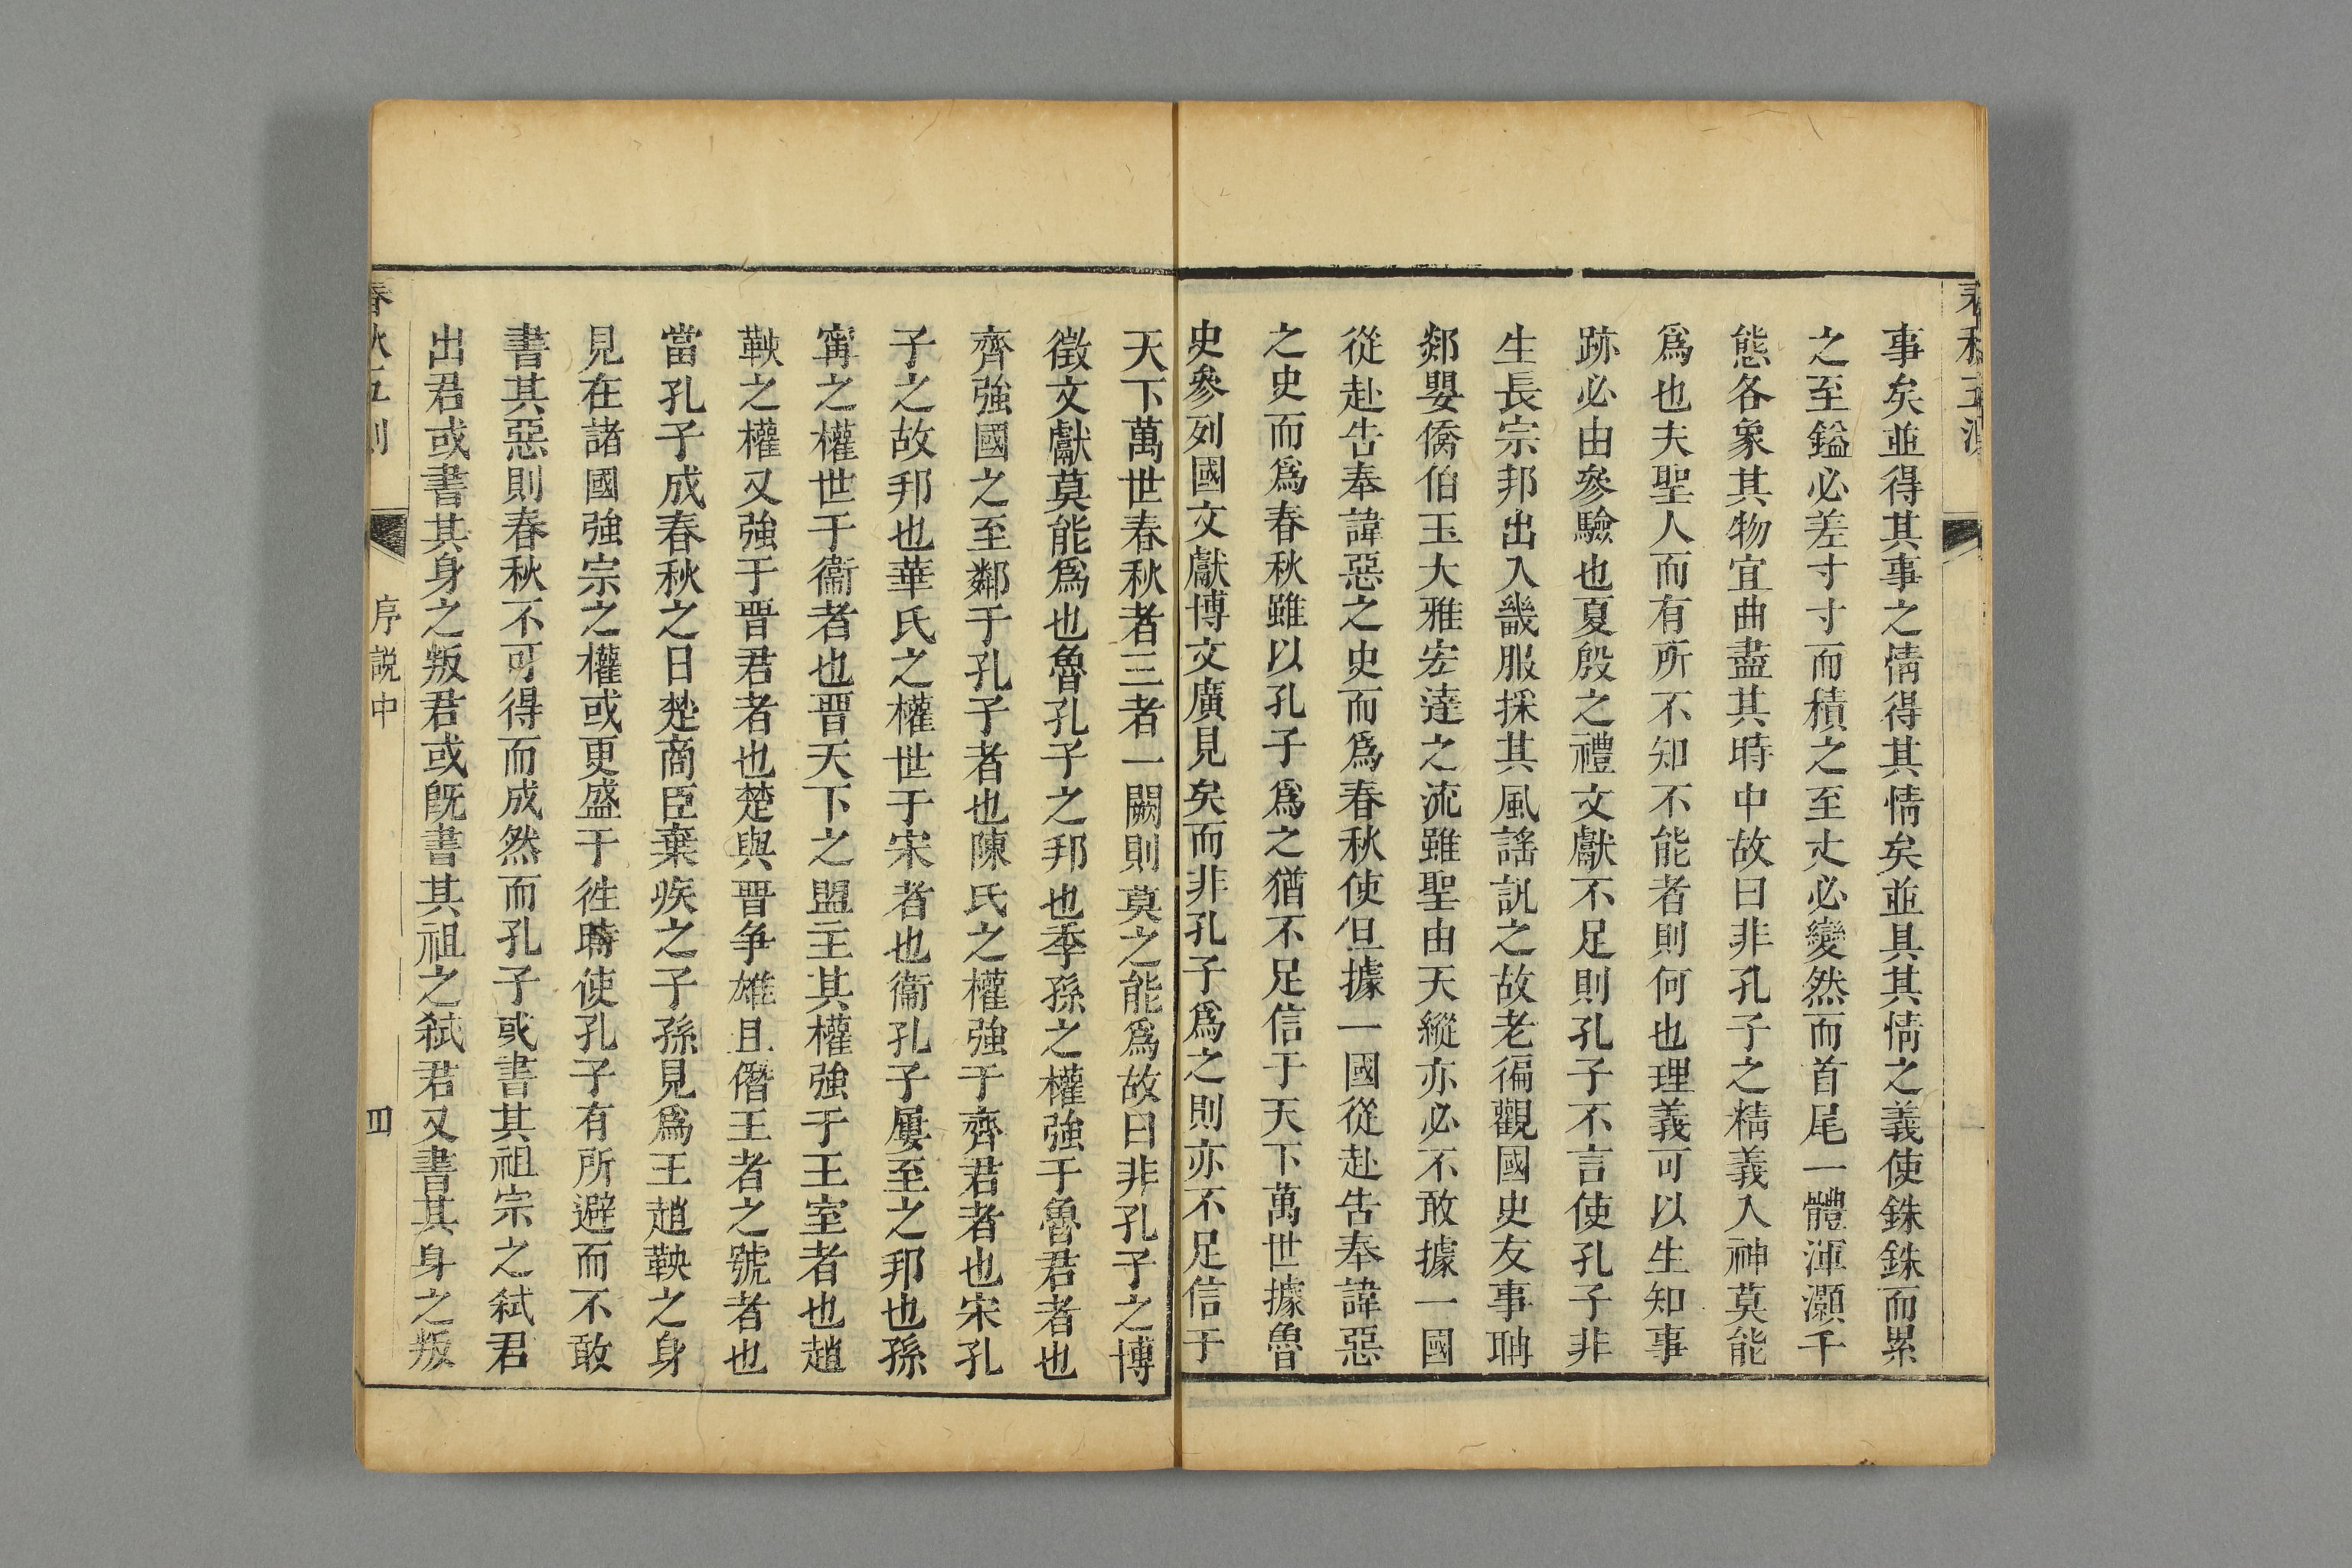 事矣並得其事之情得其情矣並具其情之義使銖銖而累
之至鎰必差寸寸而積之至丈必變然而首尾一體渾灝千
態各象其物宜曲盡其時中故曰非孔子之精義入神莫能
爲也夫聖人而有所不知不能者則何也理義可以生知事
跡必由參驗也夏殷之禮文獻不足則孔子不言使孔子非
生長宗邦出入畿服採其風謠訊之故老徧觀國史友事聃
郯嬰僑伯玉大雅宏達之流雖聖由天縱亦必不敢據一國
從赴告奉諱惡之史而爲春秋使但據一國從赴告奉諱惡
之史而爲春秋雖以孔子爲之猶不足信于天下萬世據魯
史參列國文獻博文廣見矣而非孔子爲之則亦不足信于
天下萬世春秋者三者一闕則莫之能爲故曰非孔子之博
徵文獻莫能爲也魯孔子之邦也季孫之權強于魯君者也
齊強國之至鄰于孔子者也陳氏之權強于齊君者也宋孔
子之故邦也華氏之權世于宋者也衞孔子屢至之邦也孫
甯之權世于衞者也晋天下之盟主其權強于王室者也趙
鞅之權又強于晋君者也楚與晋争雄且僭王者之號者也
當孔子成春秋之日楚商臣棄疾之子孫見爲王趙鞅之身
見在諸國強宗之權或更盛于徃時使孔子有所避而不敢
書其惡則春秋不可得而成然而孔子或書其祖宗之弑君
出君或書其身之叛君或旣書其祖之弑君又書其身之叛
春秋五則
序説中
四